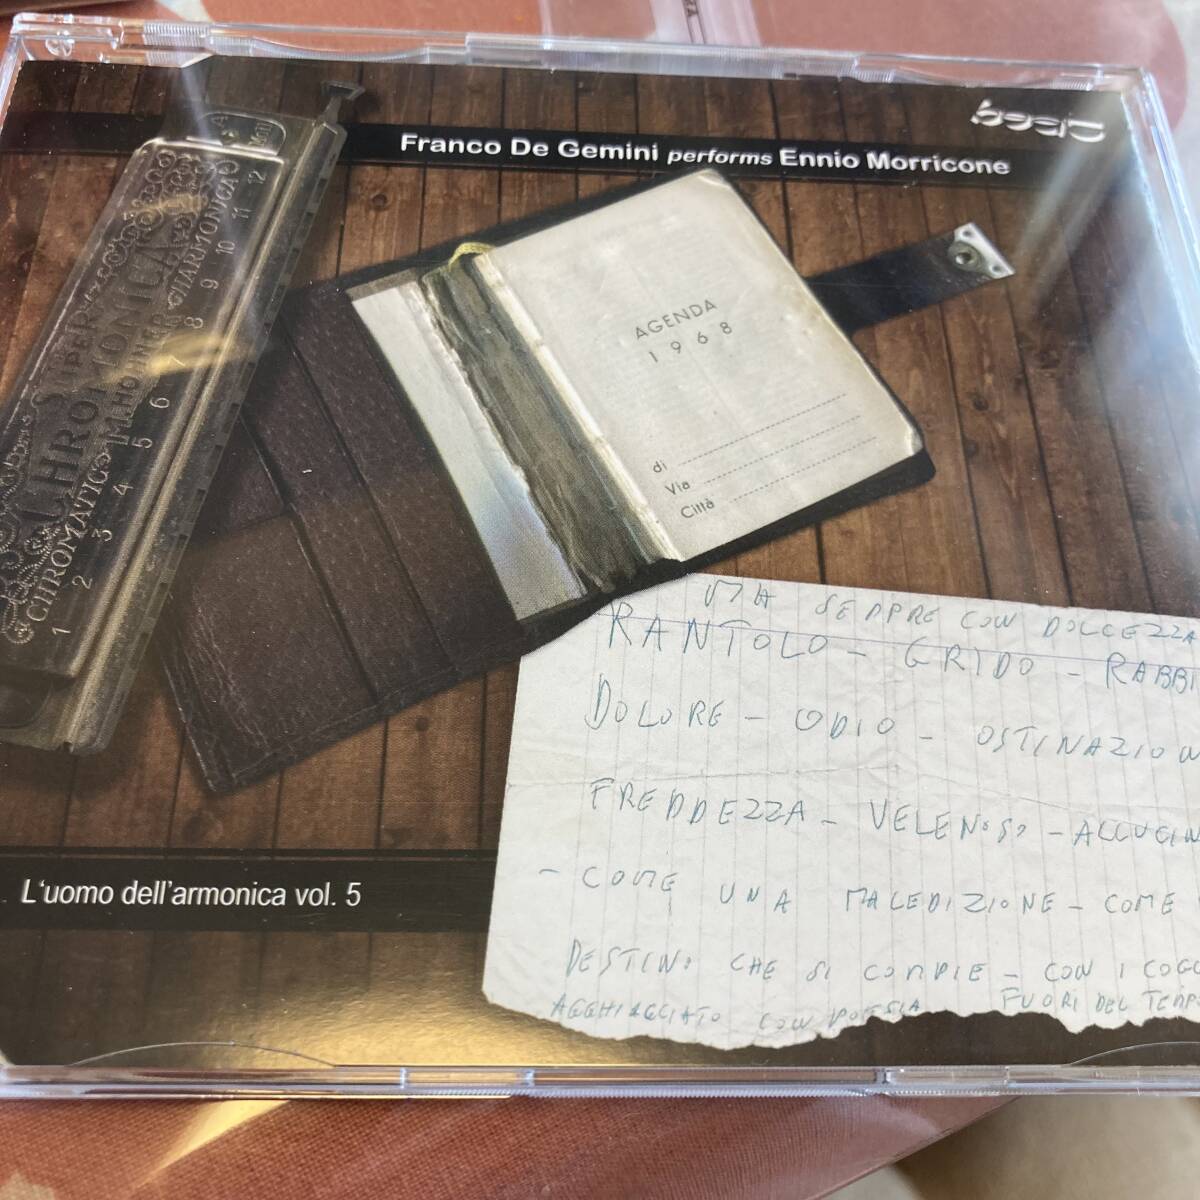 Franco De Gemini performs Ennio Morricone
SUPER
CHROMONICA
CHROMATIC M. HOHNER HARMONICA
1 2 3 4 5 6 7 8 9 10 11 12
AGENDA
1968
di
Via
Città
MA SEMPRE CON DOLCEZZA
RANTOLO - GRIDO - RABBI
DOLORE - ODIO - OSTINAZION
FREDDEZZA - VELENOSO - ALLUCIN
- COME UNA MALEDIZIONE - COME
DESTINO CHE SI COMPIE - CON I COGL
AGGHIACCIATO CON POESIA FUORI DEL TEMP
L'uomo dell'armonica vol. 5